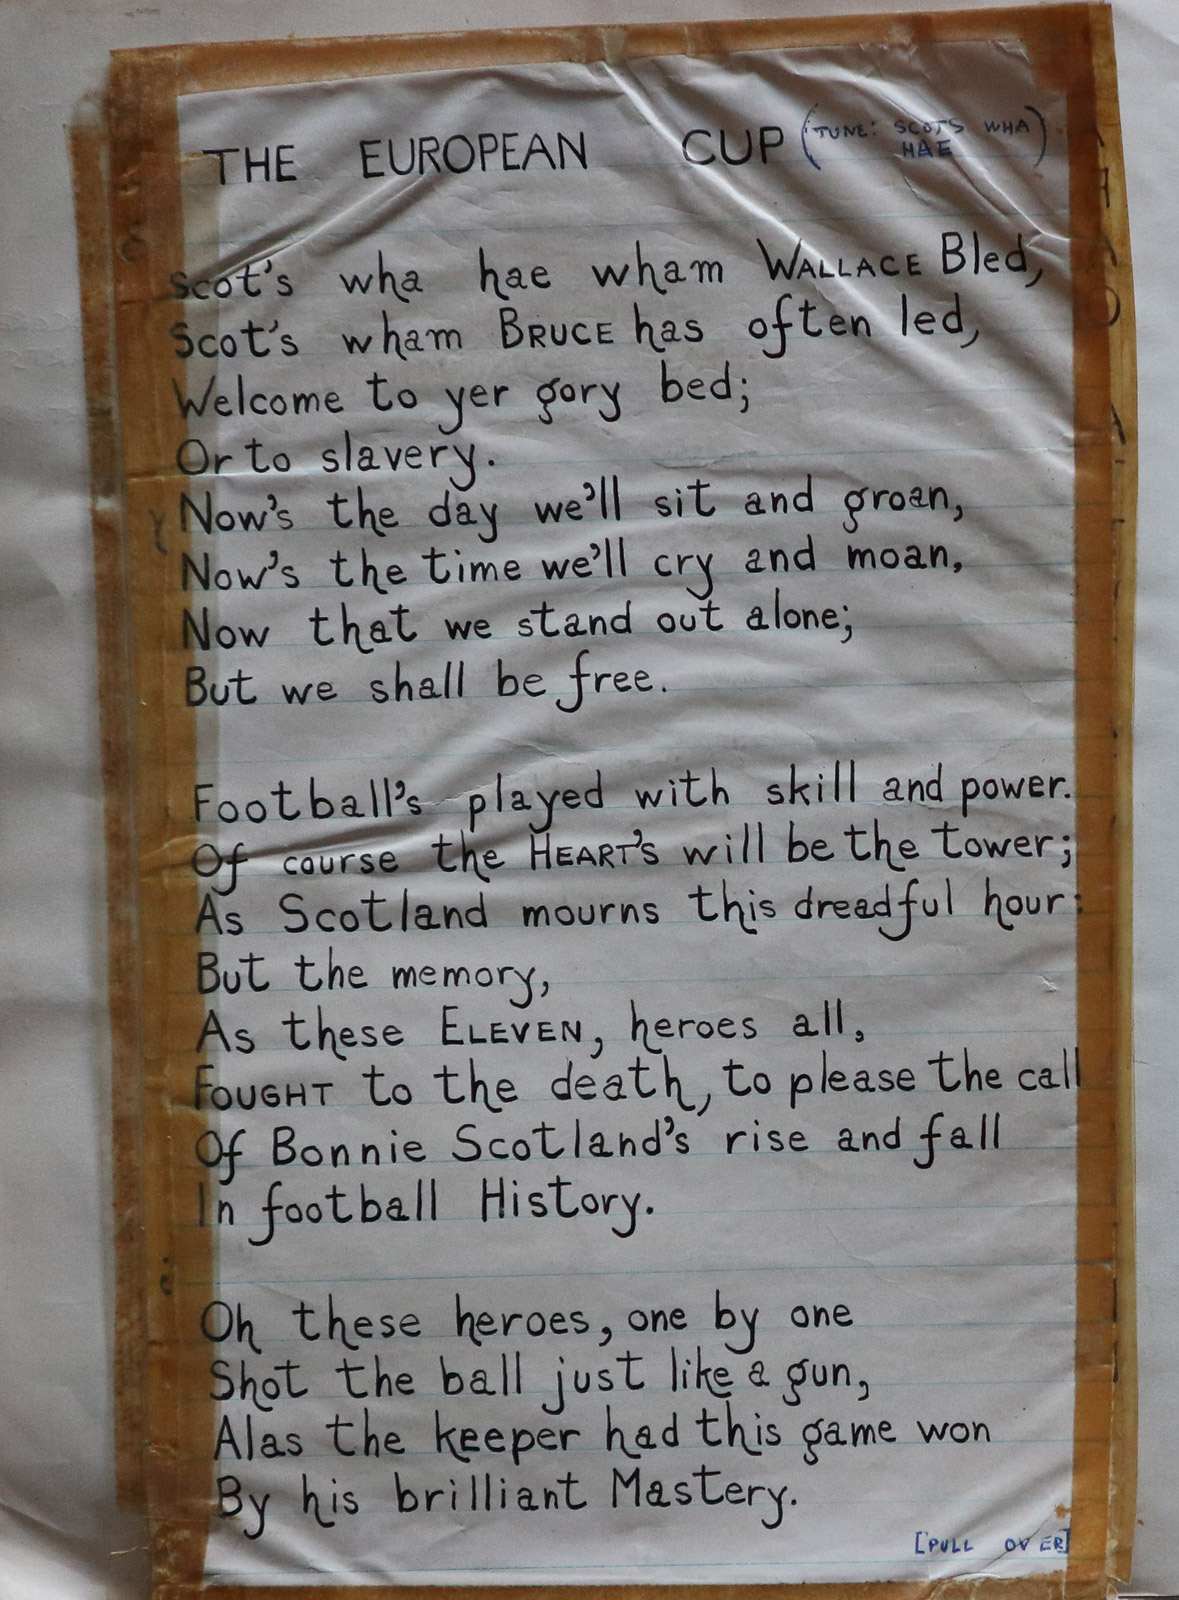 THE EUROPEAN CUP (TUNE: SCOTS WHA HAE)
Scot's wha hae wham WALLACE Bled,
Scot's wham BRUCE has often led,
Welcome to yer gory bed;
Or to slavery.
Now's the day we'll sit and groan,
Now's the time we'll cry and moan,
Now that we stand out alone;
But we shall be free.
Football's played with skill and power.
Of course the HEART'S will be the tower;
As Scotland mourns this dreadful hour:
But the memory,
As these ELEVEN, heroes all,
FOUGHT to the death, to please the call
Of Bonnie Scotland's rise and fall
In football History.
Oh these heroes, one by one
Shot the ball just like a gun,
Alas the keeper had this game won
By his brilliant Mastery.
[PULL OVER]